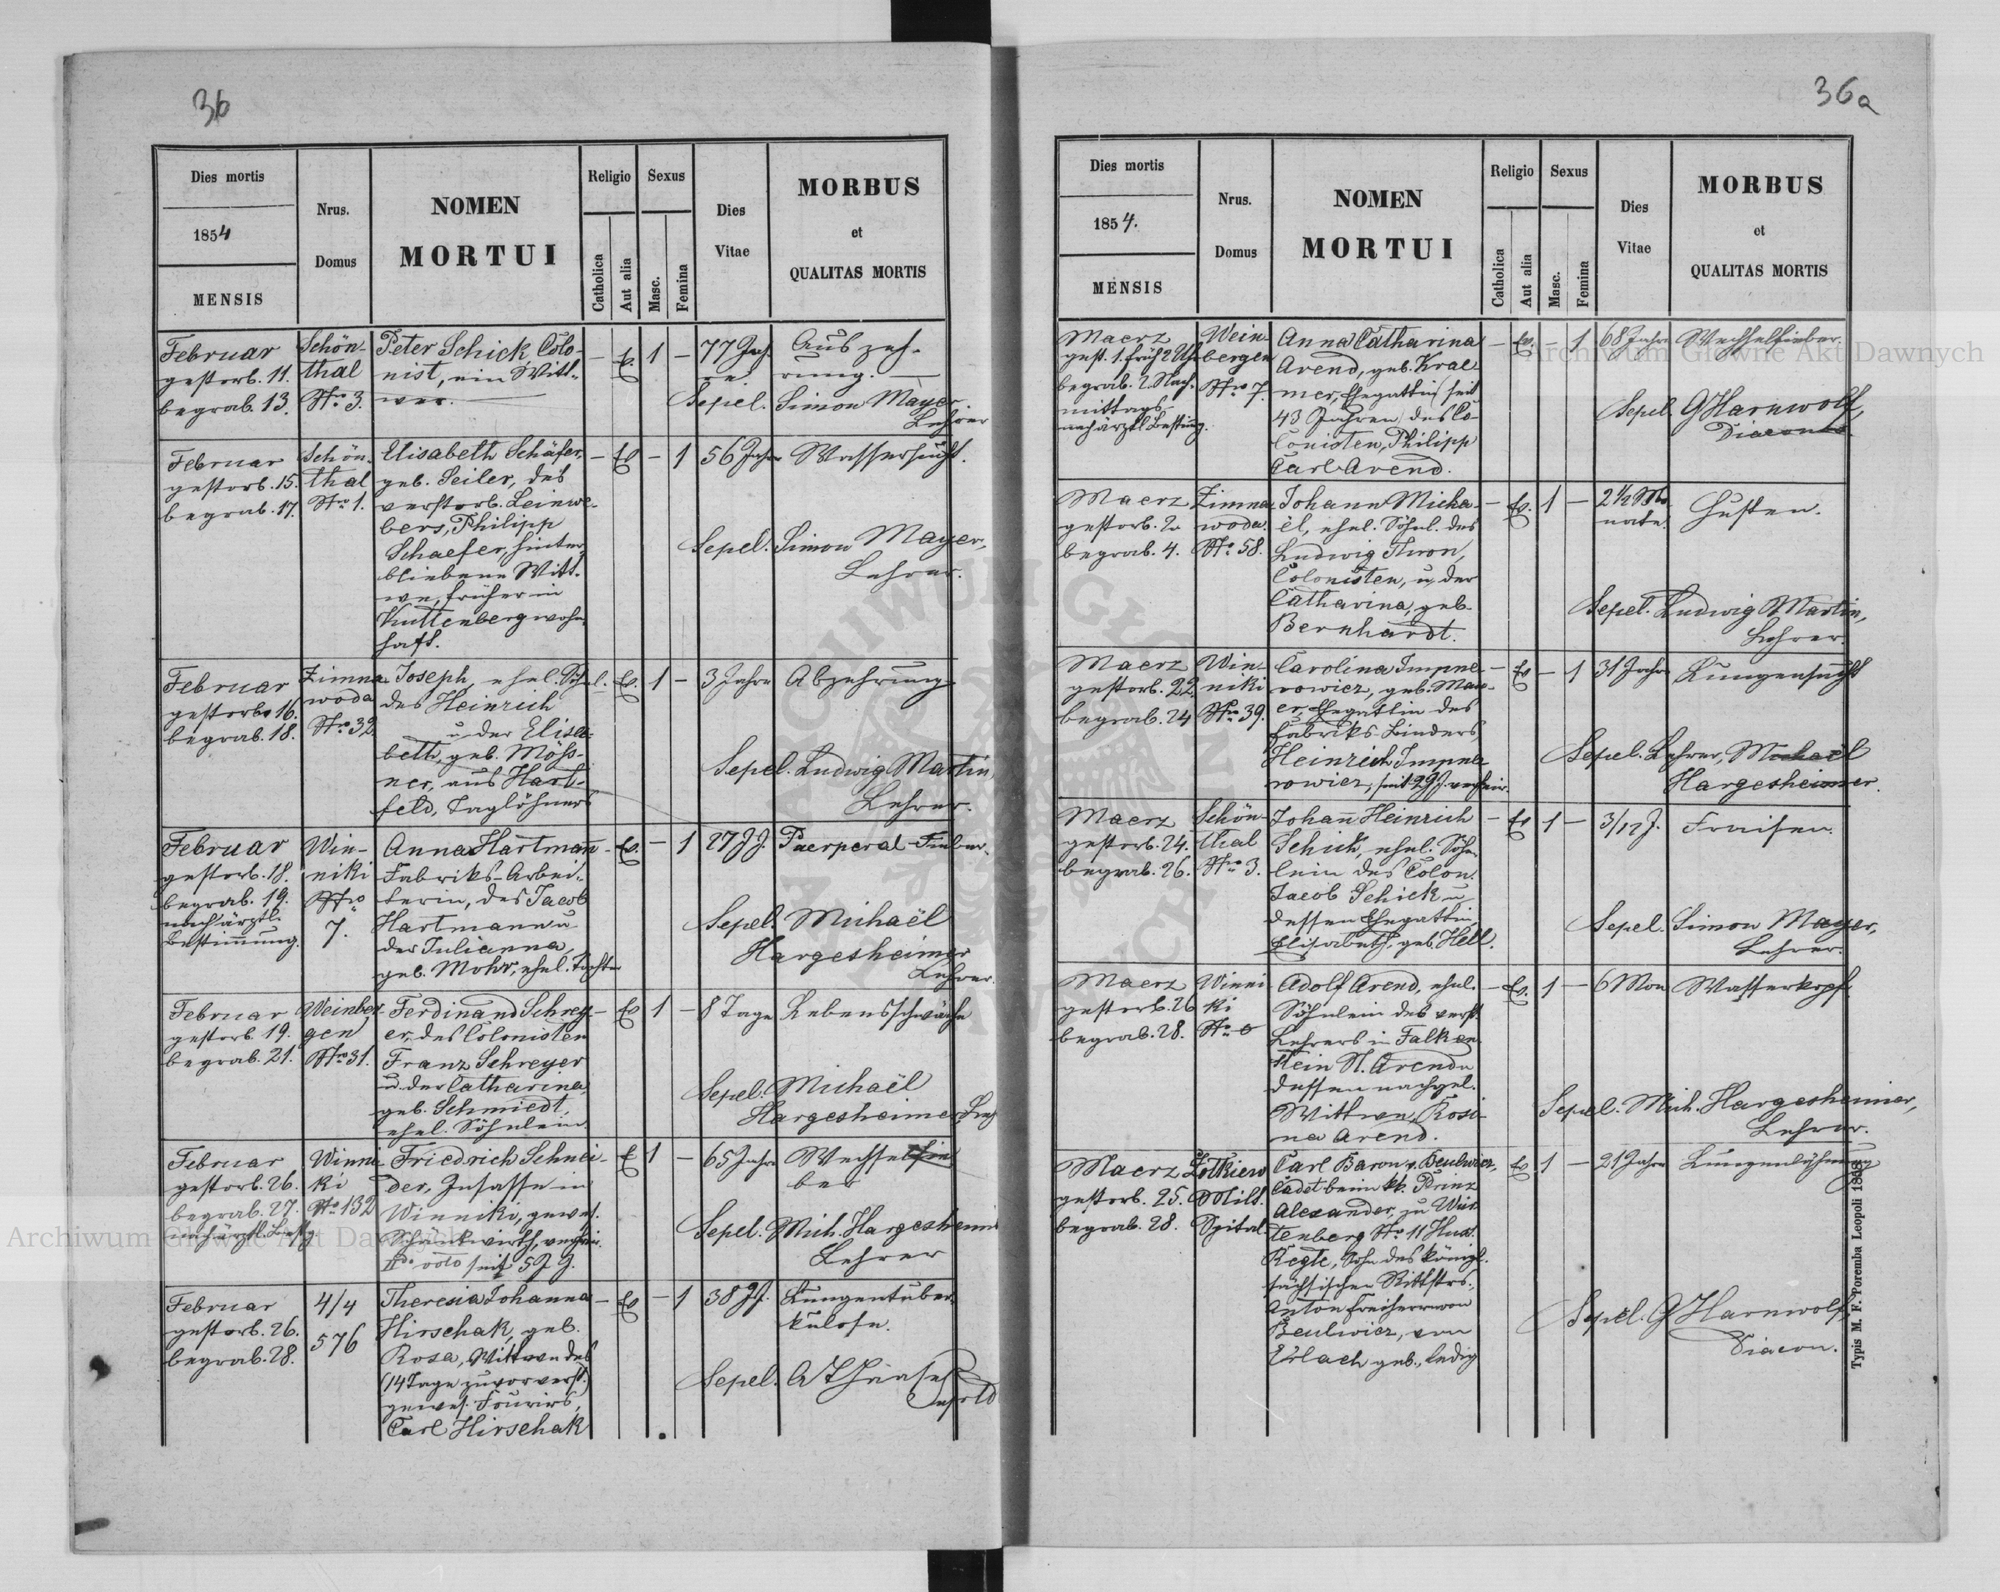 36
Dies mortis
1854
MENSIS
Nrus.
Domus
NOMEN
MORTUI
Religio
Catholica
Aut alia
Sexus
Masc.
Femina
Dies
Vitae
MORBUS
et
QUALITAS MORTIS
Februar
gestorb. 11.
begrab. 13.
Schön-
thal
Nro 3.
Peter Schick, Colo-
nist, ein Witt-
wer.
– Ev. 1 –
77 Jah-
re.
Auszeh-
rung.
Sepel. Simon Mayer.
Lehrer
Februar
gestorb. 15.
begrab. 17.
Schön-
thal
Nro 1.
Elisabeth Schäfer,
geb. Seiler, des
verstorb. Leinwe-
bers, Philipp
Schaefer, hinter-
bliebene Witt-
we, früher in
Kuttenberg wohn-
haft.
– Ev – 1
56 Jahre
Wassersucht.
Sepel. Simon Mayer,
Lehrer.
Februar
gestorb. 16.
begrab. 18.
Zimna
woda
Nro 32
Joseph, ehel. Söhnl.
des Heinrich
u. der Elisa-
beth, geb. Möss-
ner, aus Hart-
feld, Taglöhners
Ev. 1 –
3 Jahre
Abzehrung
Sepel. Ludwig Martin,
Lehrer.
Februar
gestorb. 18.
begrab. 19.
nach ärztl.
Bestimmung.
Win-
niki
Nro
7.
Anna Hartmann
Fabriks-Arbei-
terin, des Jacob
Hartmann u
der Julianna,
geb. Mohr, ehel. Tochter
– Ev. – 1
27 JJ.
Puerperal-Fieber.
Sepel. Michaël
Hargesheimer
Lehrer.
Februar
gestorb. 19.
begrab. 21.
Weinber-
gen
Nro 31.
Ferdinand Schrey-
er, des Colonisten
Franz Schreyer
u. der Catharina,
geb. Schmiedt,
ehel. Söhnlein.
– Ev 1 –
8 Tage
Lebensschwäche
Sepel. Michaël
Hargesheimer, Lehr
Februar
gestorb. 26.
begrab. 27.
nach ärztl. Bestg.
Winni-
ki
Nro 132
Friedrich Schnei-
der, Insasse in
Winniki, gewes.
Schänkwirth, verhei.
IIdo voto seit 5 J.
– E 1 –
65 Jahre
Wechselfie
ber
Sepel. Mich. Hargesheimer
Lehrer
Februar
gestorb. 26.
begrab. 28.
4/4
576
Theresia Johanna
Hirschak, geb.
Rosa, Wittwe des
(14 Tage zuvor verst.)
gewes. Fouriers,
Carl Hirschak
– Ev – 1
38 JJ.
Lungentuber-
kulose.
Sepel.
36a
Dies mortis
1854.
MENSIS
Nrus.
Domus
NOMEN
MORTUI
Religio
Catholica
Aut alia
Sexus
Masc.
Femina
Dies
Vitae
MORBUS
et
QUALITAS MORTIS
Maerz
gest. 1. früh 2 Uhr
begrab. 2. Nach-
mittags
nach ärztl. Bestimg.
Wein-
bergen
Nro 7.
Anna Catharina
Arend, geb. Kral-
mer, Ehegattin seit
43 Jahren des Co-
lonisten, Philipp
Carl Arend.
– Ev. – 1
68 Jahre
Wechselfieber.
Sepel. G Harnwolf,
Diaconus.
Maerz
gestorb. 2.
begrab. 4.
Zimna
woda.
Nro 58.
Johann Micha-
ël, ehel. Söhnl. des
Ludwig Thron,
Colonisten, u. der
Catharina, geb.
Bernhardt.
– Ev. 1 –
2 1/2 Mo-
nate.
Husten.
Sepel. Ludwig Martin,
Lehrer.
Maerz
gestorb. 22.
begrab. 24
Win-
niki
Nro 39.
Carolina Impne-
rowicz, geb. Mau-
er, Ehegattin des
Fabriks-Binders,
Heinrich Impne
rowicz, seit 29 J. verheir.
– Ev – 1
31 Jahre
Lungensucht
Sepel. Lehrer, Michaël
Hargesheimer.
Maerz
gestorb. 24.
begrab. 26.
Schön-
thal
Nro 3.
Johann Heinrich
Schick, ehel. Söhn-
lein des Colon.
Jacob Schick u.
dessen Ehegattin
Elisabeth, geb. Hell.
– Ev 1 –
3/12 J.
Fraisen.
Sepel. Simon Mayer,
Lehrer.
Maerz
gestorb. 26
begrab. 28.
Winni
ki
Nro 0
Adolf Arend, ehel.
Söhnlein des verst.
Lehrers in Falken-
stein N. Arend u
dessen nachgel.
Wittwe, Rosi-
na Arend.
– Ev. 1 –
6 Mon
Wasserkopf.
Sepel. Mich. Hargesheimer,
Lehrer.
Maerz
gestorb. 25.
begrab. 28.
Zolkiew
Milit.
Spital.
Carl Baron v. Beulwicz,
Cadet beim kk. Prinz
Alexander, zu Wür-
tenberg Nro 11 Hus.
Regte, Sohn des königl.
sächsischen Rittstrs.,
Anton Freiherr von
Beulwicz, von
Erlach geb., ledig
Ev 1 –
21 Jahre
Lungenlähmung
Sepel. G Harnwolf,
Diacon.
Typis M. F. Poremba Leopoli 1868
Archiwum Główne Akt Dawnych
Archiwum Główne Akt Dawnych